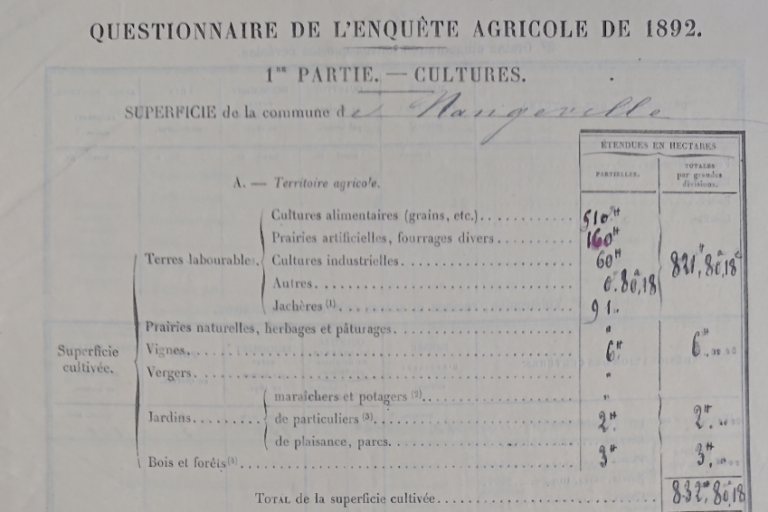 QUESTIONNAIRE DE L'ENQUÊTE AGRICOLE DE 1892.
1re PARTIE. — CULTURES.
SUPERFICIE de la commune de Nangeville
ÉTENDUES EN HECTARES
PARTIELLES.
TOTALES par grandes divisions.
A. — Territoire agricole.
Superficie cultivée.
Terres labourables.
Cultures alimentaires (grains, etc.) 510H
Prairies artificielles, fourrages divers 160H
Cultures industrielles 60H 821H,80a,18c
Autres 0.80,18
Jachères (1) 91..
Prairies naturelles, herbages et pâturages "
Vignes 6H 6H
Vergers "
Jardins
maraîchers et potagers (2) "
de particuliers (3) 2H 2H
de plaisance, parcs.
Bois et forêts (4) 3H 3H
TOTAL de la superficie cultivée 832H,80a,18